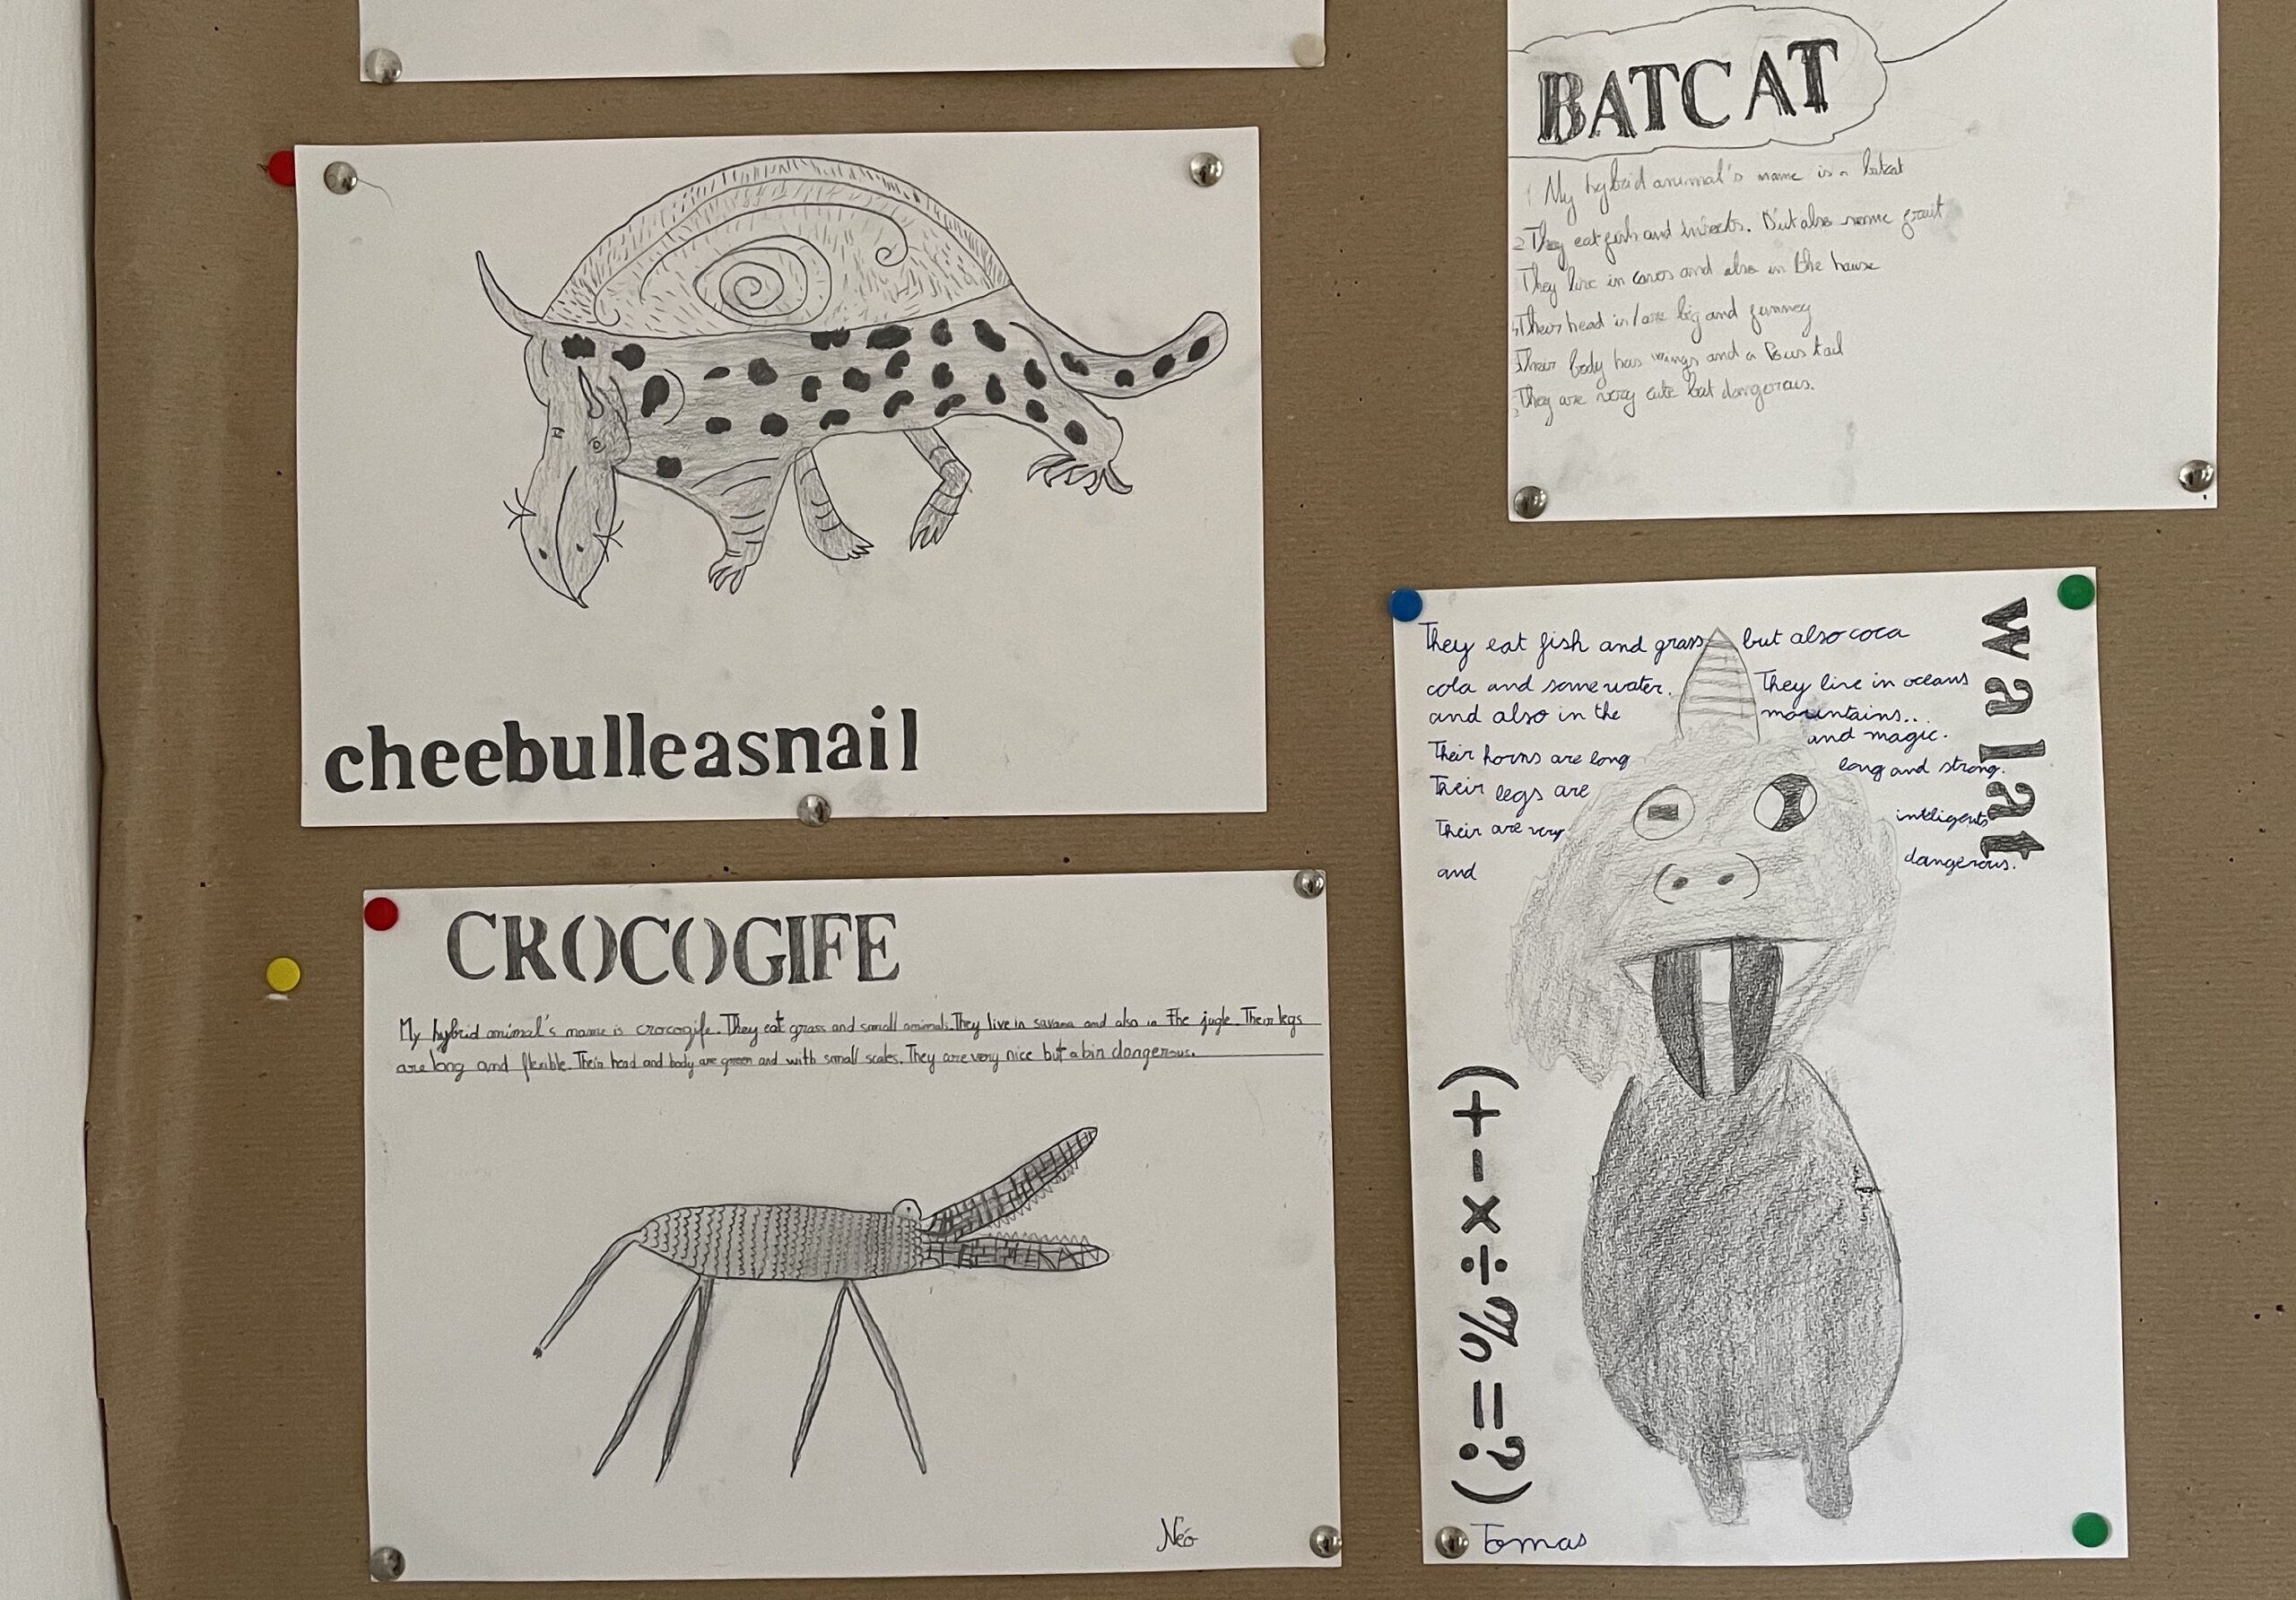 BATCAT
My hybrid animal's name is a batcat
2 They eat fish and insects. But also some fruit
They live in caves and also in the house
4 Their head is/are big and funney
Their body has wings and a tail
They are very cute but dangerous.
cheebulleasnail
CROCOGIFE
My hybrid animal's name is crocogife. They eat grass and small animals. They live in savana and also in the jugle. Their legs
are long and flexible. Their head and body are green and with small scales. They are very nice but a bin dangerous.
Néo
walat
They eat fish and grass but also coca
cola and some water. They live in oceans
and also in the mountains...
and magic.
Their horns are long
long and strong.
Their legs are
Their are very intligents
and dangerous.
(+-×÷%=?)
Tomas